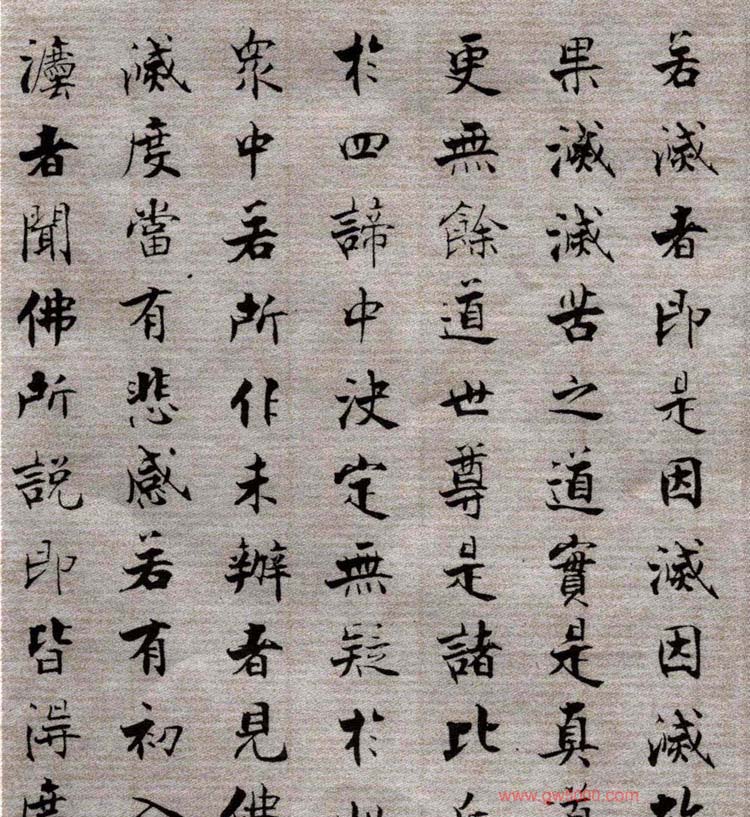 若滅者即是因滅因滅故
果滅滅苦之道實是真道
更無餘道世尊是諸比丘
於四諦中決定無疑於
衆中若所作未辦者見佛
滅度當有悲感若有初入
灋者聞佛所説即皆得度